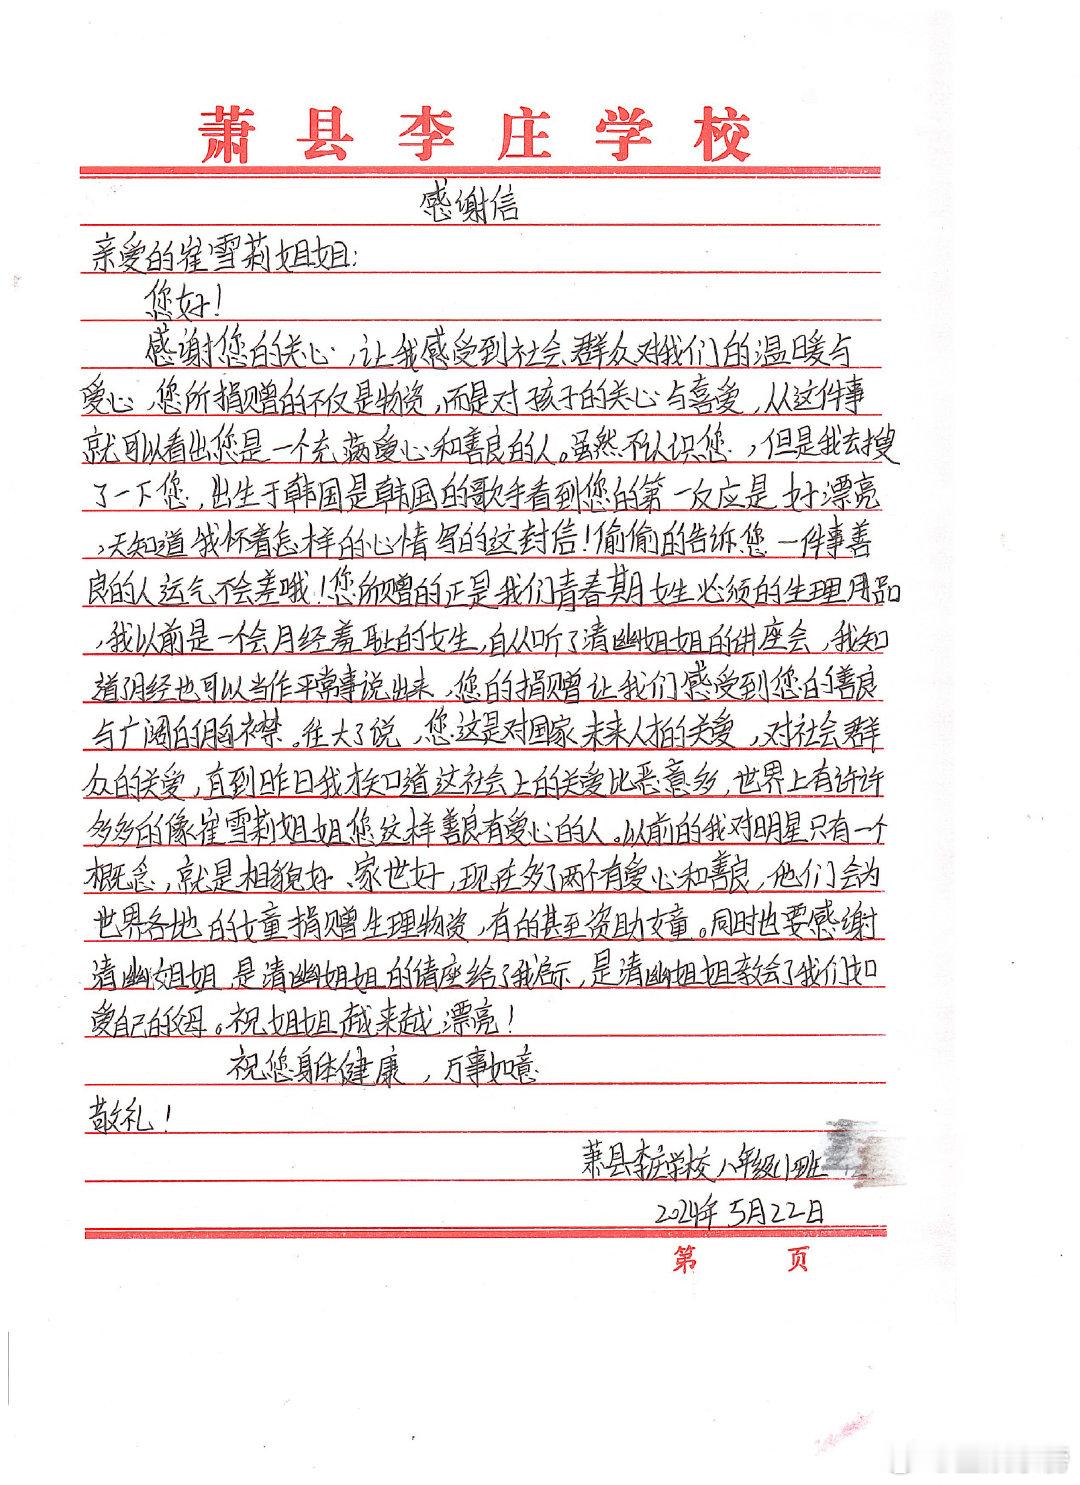 萧县李庄学校
感谢信
亲爱的崔雪莉姐姐：
您好！
感谢您的关心，让我感受到社会群众对我们的温暖与
爱心，您所捐赠的不仅是物资，而是对孩子的关心与喜爱，从这件事
就可以看出您是一个充满爱心和善良的人。虽然不认识您，但是我去搜
了一下您，出生于韩国是韩国的歌手看到您的第一反应是好漂亮
，天知道我怀着怎样的心情写的这封信！偷偷的告诉您一件事善
良的人运气不会差哦！您所赠的正是我们青春期女生必须的生理用品
，我以前是一个会月经羞耻的女生，自从听了清幽姐姐的讲座会，我知
道了月经也可以当作平常事说出来，您的捐赠让我们感受到您的善良
与广阔的胸襟。往大了说，您这是对国家未来人才的关爱，对社会群
众的关爱，直到昨日我才知道这社会上的关爱比恶意多，世界上有许许
多多的像崔雪莉姐姐您这样善良有爱心的人。以前的我对明星只有一个
概念，就是相貌好、家世好，现在多了两个有爱心和善良，他们会为
世界各地的女童捐赠生理物资，有的甚至资助女童。同时也要感谢
清幽姐姐，是清幽姐姐的讲座给了我启示，是清幽姐姐教会了我们如
爱自己的父母。祝姐姐越来越漂亮！
祝您身体健康，万事如意
敬礼！
萧县李庄学校八年级(1)班
2024年5月22日
第 页